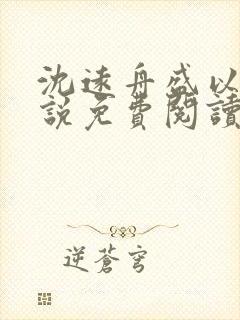 沈遠舟盛以
說免費閱讀
逆蒼穹